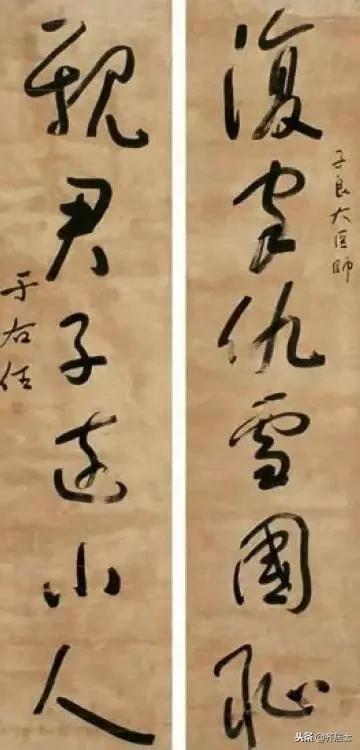 復家仇雪國恥
子良大医師
親君子遠小人
于右任
头条@齐居士